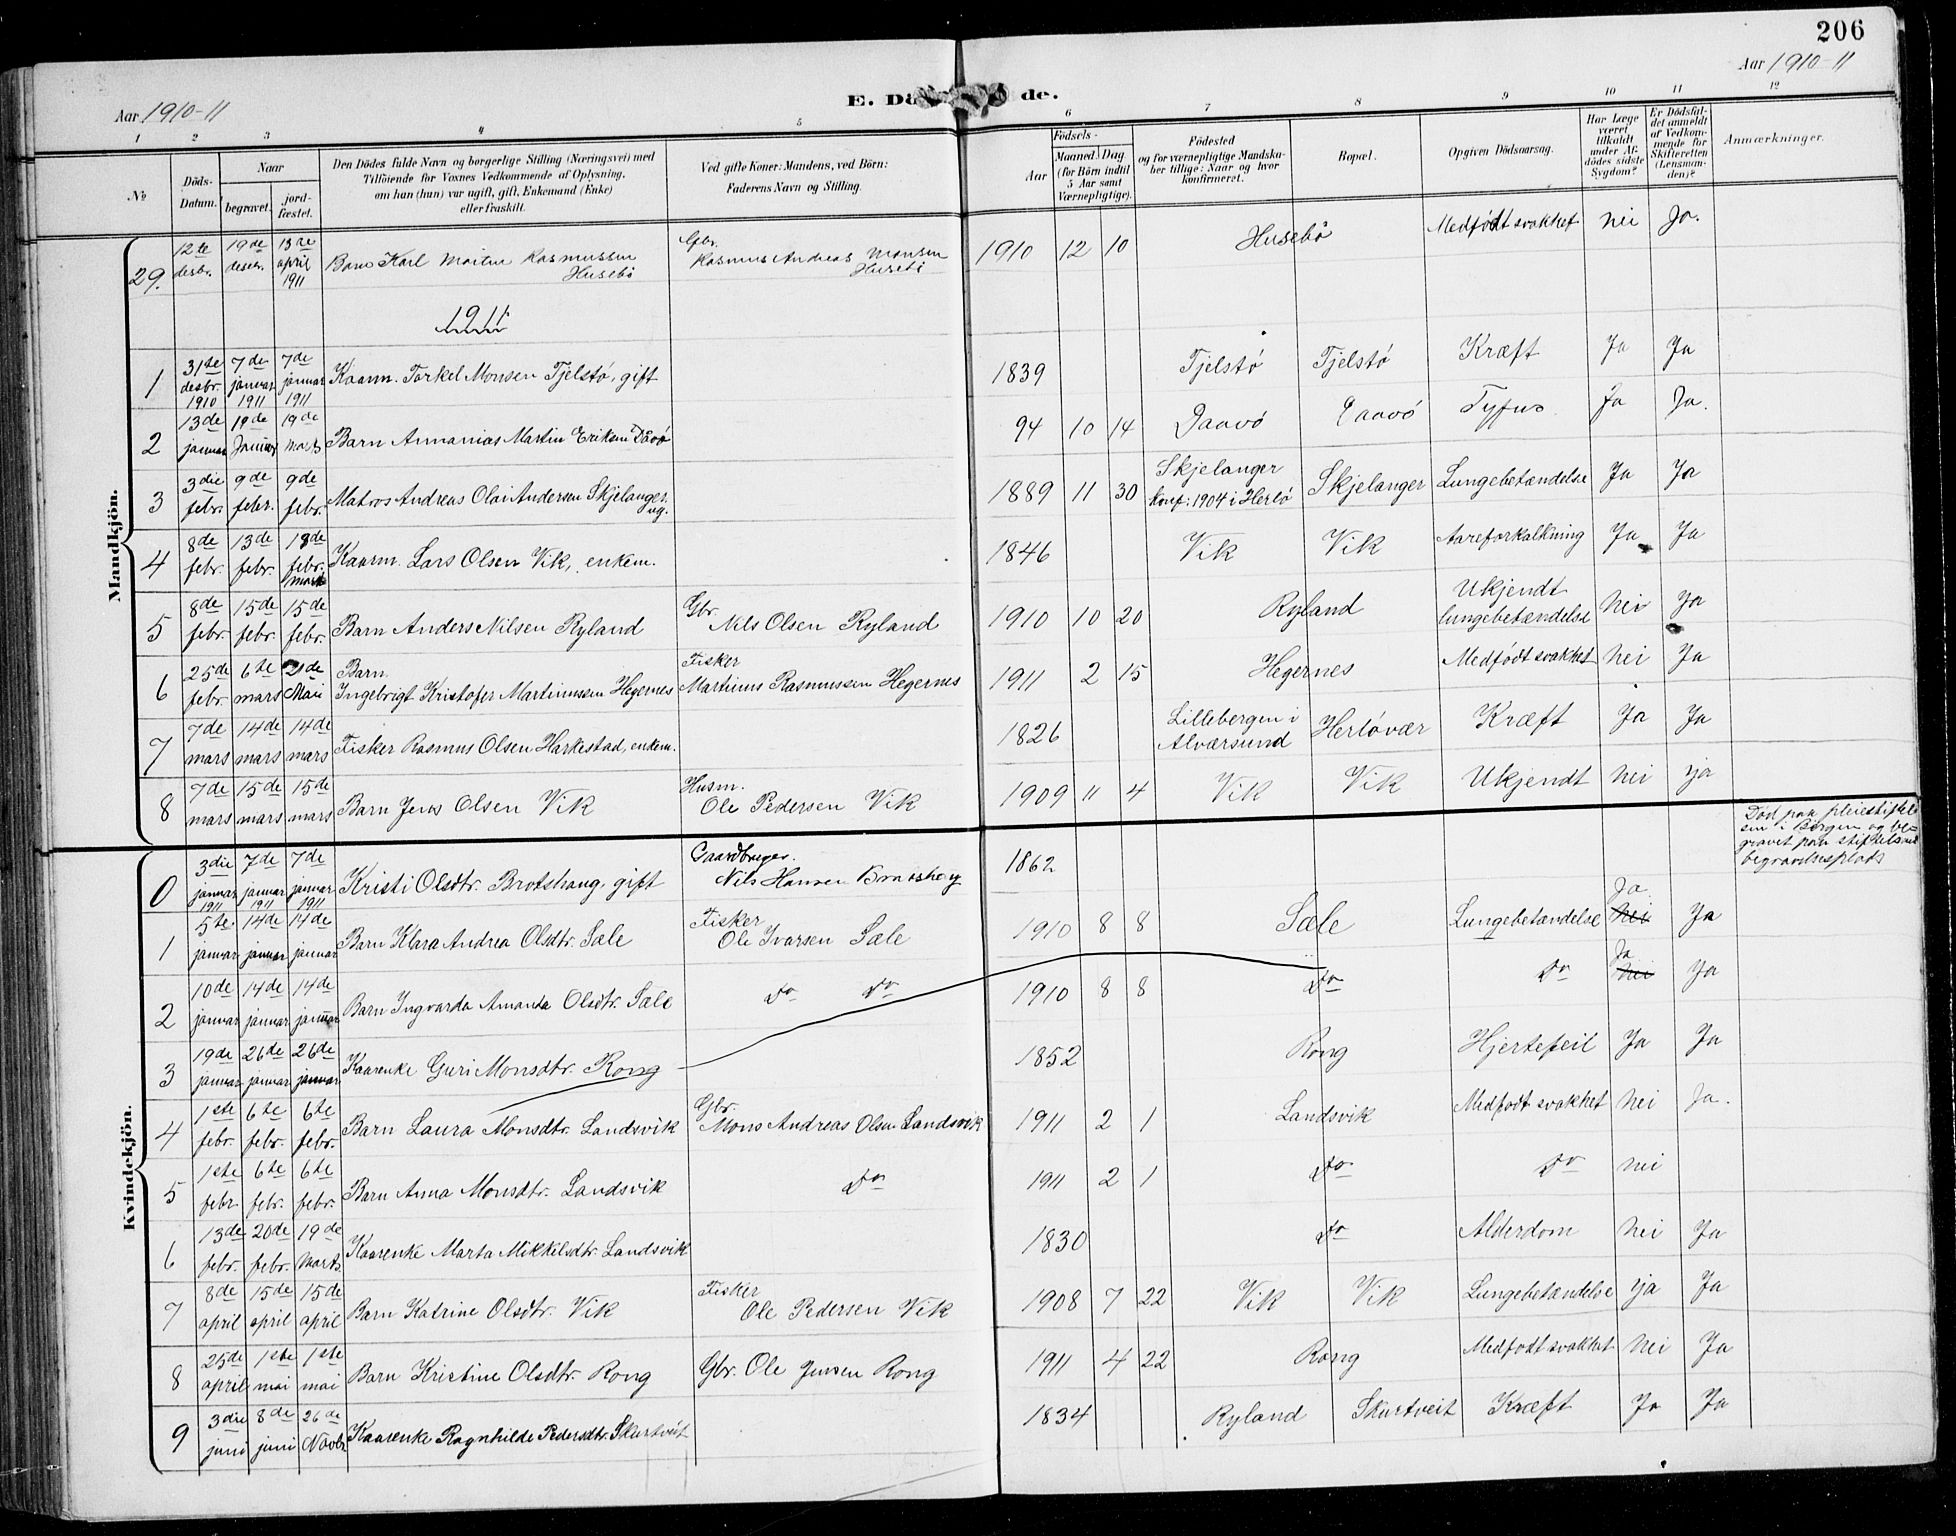 206
Aar 1910-11
Aar 1910-11
E. Dö de.
1 2 3 4 5 6 7 8 9 10 11 12
№
Döds-Datum.
Naar
begravet.
jord-fæstet.
Den Dödes fulde Navn og borgerlige Stilling (Næringsvei) med
Tilföiende for Voxnes Vedkommende af Oplysning,
om han (hun) var ugift, gift, Enkemand (Enke)
eller fraskilt.
Ved gifte Koner: Mandens, ved Börn:
Faderens Navn og Stilling.
Födsels-
Aar
Maaned. Dag
(for Börn indtil
5 Aar samt
Værnepligtige).
Födested
og for værnepligtige Mandska-
ber tillige: Naar og hvor
konfirmeret.
Bopæl.
Opgiven Dödsaarsag.
Har Læge
været
tilkaldt
under Af-
dödes sidste
Sygdom?
Er Dödsfal-
det anmeldt
af Vedkom-
mende for
Skifteretten
(Lensman-
den)?
Anmærkninger.
Mandkjön.
29. 12te desbr. 19de desbr. 13de april 1911 Barn Karl Rasmussen Husebö Gbr. Rasmus Andreas Monsen Husebö 1910 12 10 Husebö Medfödt svakhet nei Ja.
1911
1 31te desbr. 1910 7de januar 1911 7de januar 1911 Kaarm. Torkel Monsen Tjelstø, gift 1839 Tjelstø Tjelstø Kræft Ja Ja
2 13de januar 19de Januar 19de Marts Barn Annanias Martin Eriksen Davø 94 10 14 Daavø Tyfus Ja Ja.
3 3die febr. 9de febr. 9de febr. Matros Andreas Olai Andersen Skjelanger ug. 1889 11 30 Skjelanger konf: 1904 i Herlö Skjelanger Lungebetændelse Ja Ja
4 8de febr. 13de febr. febr. mars Kaarm. Lars Olsen Vik, enkem. 1846 Vik Vik Aareforkalkning Ja Ja
5 8de febr. 15de febr. 15de febr. Barn Anders Nilsen Ryland Gbr. Nils Olsen Ryland 1910 10 20 Ryland Ukjendt lungebetændelse Nei Ja
6 25de febr. 6te mars Mai Barn Ingebrigt Kristofer Martinussen Hegernes Fisker Martinus Rasmussen Hegernes 1911 2 15 Hegernes Medfødt svakhet Nei Ja
7 7de mars 14de mars 14de mars Fisker Rasmus Olsen Harkestad, enkem. 1826 Lillebergen i Alværsund Herløvær Kræft Ja Ja
8 7de mars 15de mars 15de mars Barn Jens Olsen Vik Husm. Ole Pedersen Vik 1909 11 4 Vik Vik Ukjendt Nei ja
Kvindekjön.
0 3die januar 1911 7de januar 1911 7de januar 1911 Kristi Olsdtr. gift Gaardbruger. Nils Hansen 1862 Død paa pleiestiftel sen i Bergen og be= gravet paa stiftelsens begravelsesplads
1 5te januar 14de januar 14de januar Barn Klara Andrea Olsdtr. Sæle Fisker Ole Ivarsen Sæle 1910 8 8 Sæle Lungebetændelse Nei Ja Ja
2 10de januar 14de januar 14de januar Barn Ingvarda Amanda Olsdtr. Sæle do do 1910 8 8 do do Nei Ja Ja
3 19de januar 26de januar 26de januar Kaarenke Guri Monsdtr. Rong 1852 Rong Hjertefeil Ja Ja
4 1ste febr. 6te febr. 6te febr. Barn Laura Monsdtr. Landsvik Gbr. Mons Andreas Olsen Landsvik 1911 2 1 Landsvik Medfødt svakhet Nei Ja.
5 1ste febr 6te febr. 6te febr. Barn Anna Monsdtr. Landsvik do 1911 2 1 do do Nei
6 13de febr. 20de febr. 19de Marts Kaarenke Marta Mikkelsdtr. Landsvik 1830 do Alderdom Nei Ja
7 8de april 15de april 15de april Barn Katrine Olsdtr. Vik Fisker Ole Pedersen Vik 1908 7 22 Vik Vik Lungebetændelse ja Ja
8 25de april 1ste mai 1ste mai Barn Kristine Olsdtr. Rong Gbr. Ole Jensen Rong 1911 4 22 Rong Medfødt svakhet Nei Ja
9 3die juni 8de juni 26de Novbr Kaarenke Ragnhilde Pedersdtr. Skurtveit 1834 Ryland Skurtveit Kræft Ja Ja